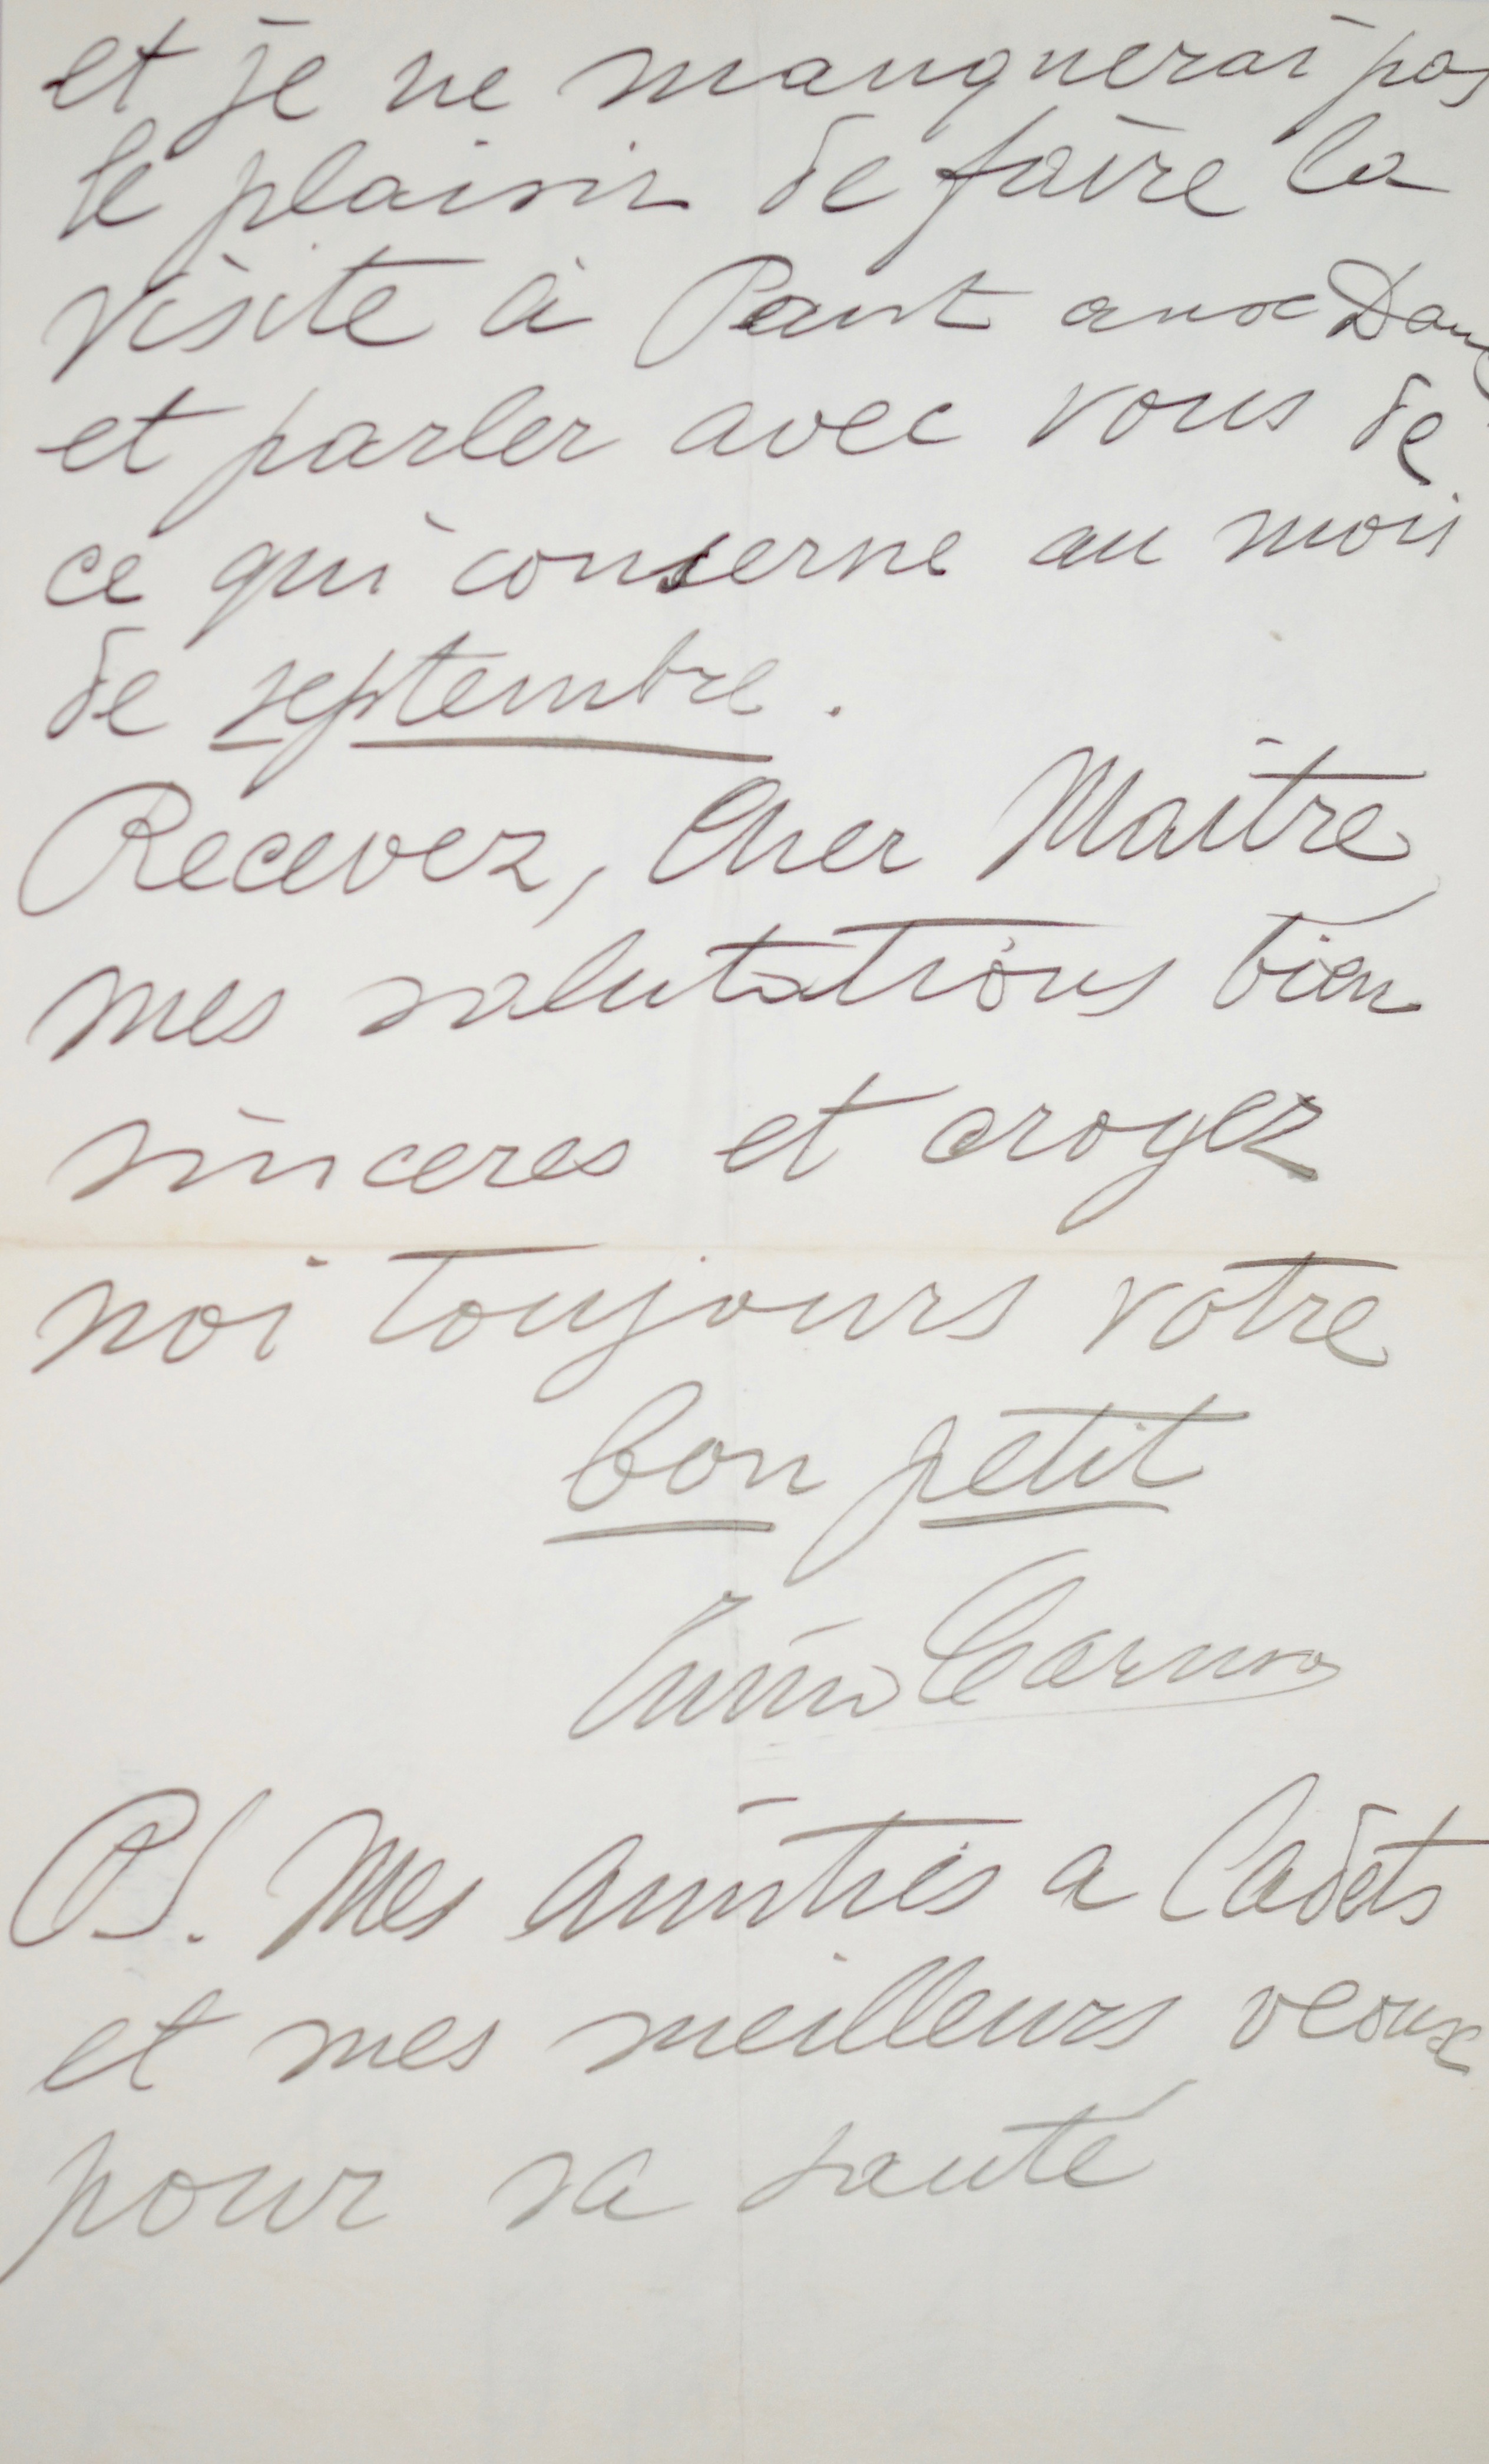 et je ne manquerai pas
le plaisir de faire la
visite à Pont aux Dam
et parler avec vous de
ce qui conserne au mois
de septembre.
Recevez, Cher Maitre,
mes salutations bien
sinceres et croyez
moi toujours votre
bon petit
Enrico Caruso
PS. Mes amitiés a Cadets
et mes meilleurs veoux
pour sa santé